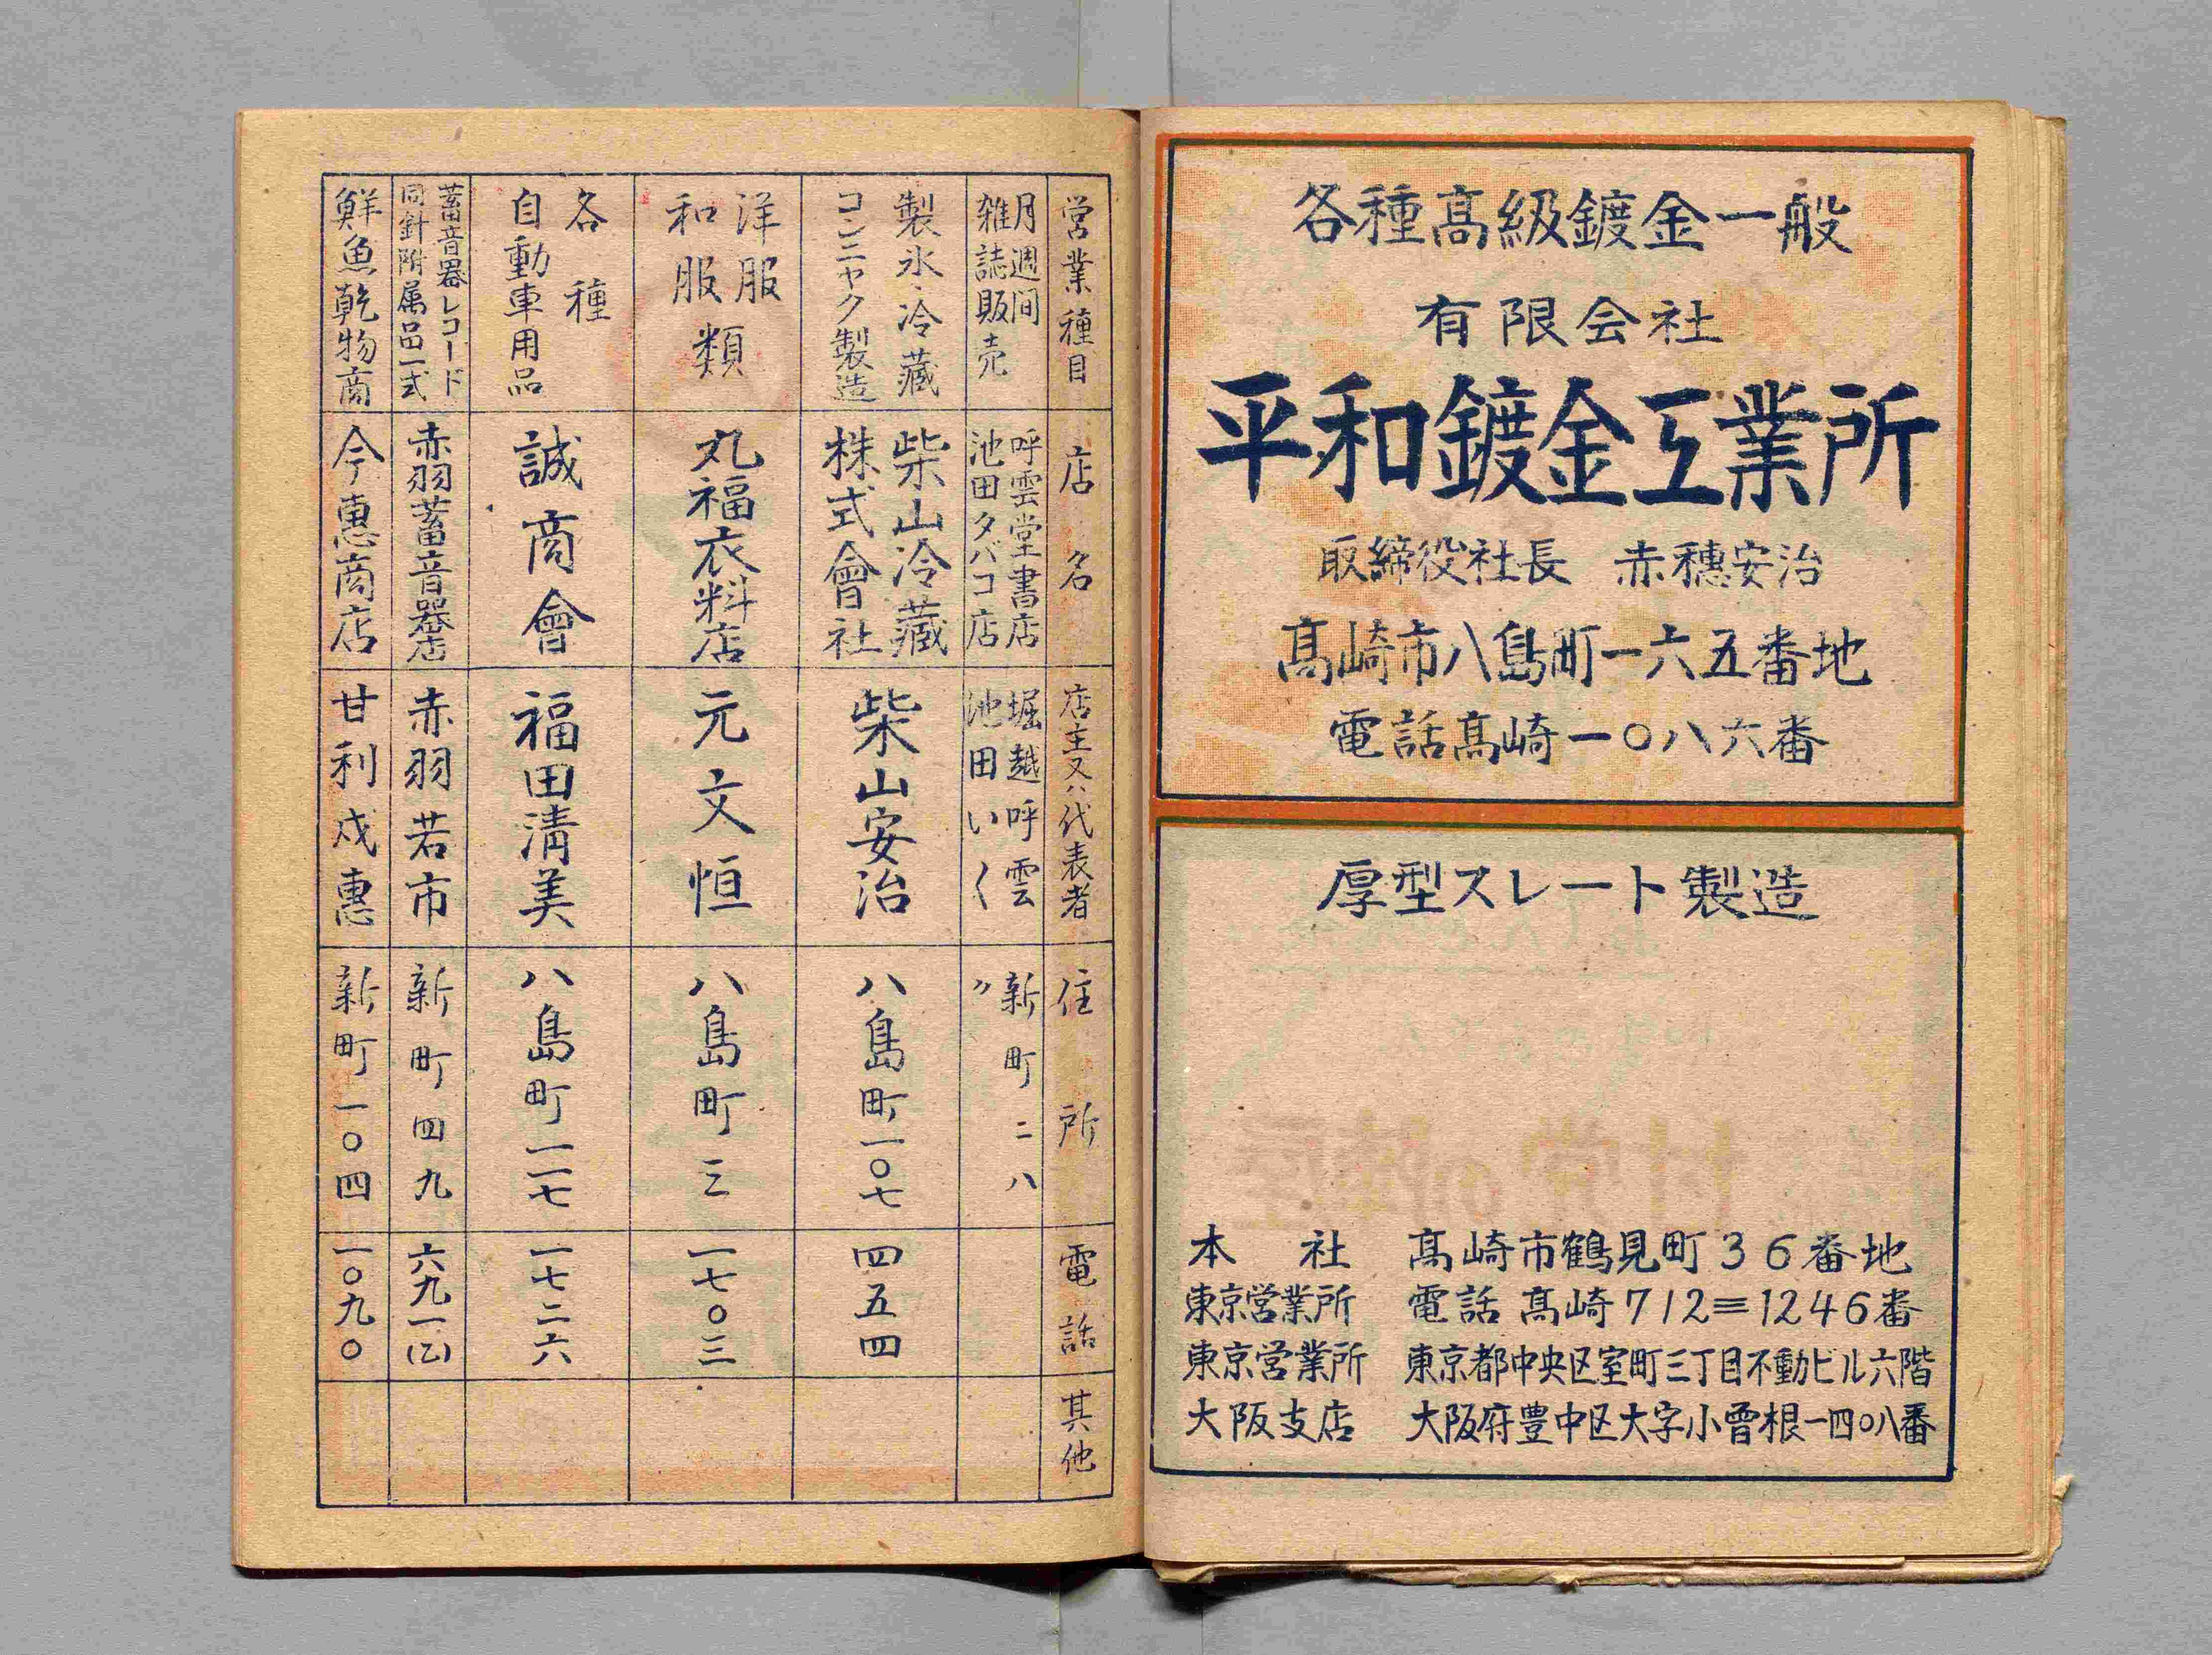 各種高級鍍金一般
有限会社
平和鍍金工業所
取締役社長 赤穗安治
髙崎市八島町一六五番地
電話髙崎一〇八六番
厚型スレート製造
本社 髙崎市鶴見町36番地
東京営業所 電話 髙崎712≡1246番
東京営業所 東京都中央区室町三丁目不動ビル六階
大阪支店 大阪府豊中区大字小曽根一四〇八番
営業種目
店名
店主又ハ代表者
住所
電話
其他
月週間
雑誌販売
呼雲堂書店
池田タバコ店
堀越呼雲
池田いく
新町二八
〃
製氷冷藏
コンニヤク製造
柴山冷藏
株式會社
柴山安治
八島町一〇七
四五四
洋服
和服類
丸福衣料店
元文恒
八島町三
一七〇三
各種
自動車用品
誠商會
福田清美
八島町一一七
一七二六
蓄音器レコード
同針附属品一式
赤羽蓄音器店
赤羽若市
新町四九
六九一(乙)
鮮魚乾物商
今惠商店
甘利戍惠
新町一〇四
一〇九〇